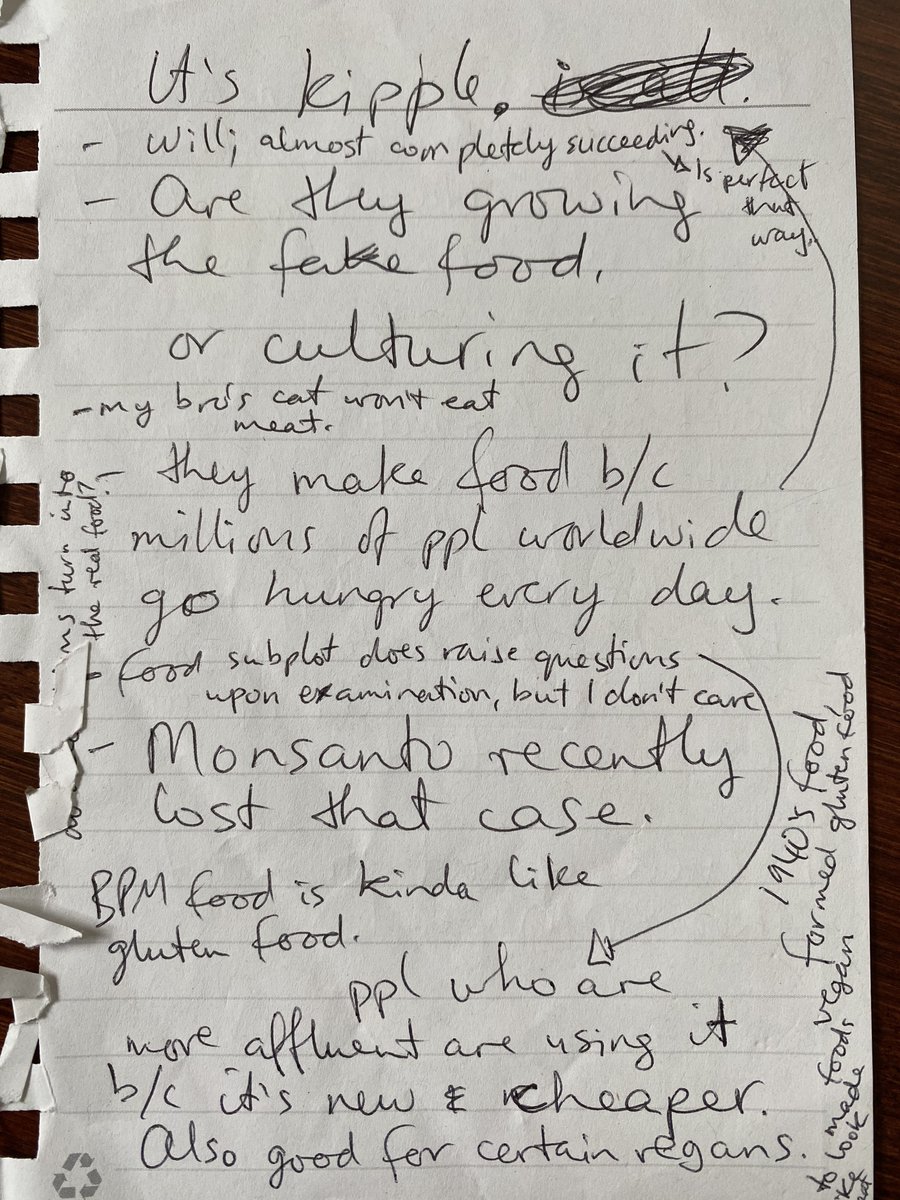 It's kipple.
- Will; almost completely succeeding.
Is perfect
that
way.
- Are they growing
the fake food,
or culturing it?
- my bro's cat won't eat
meat.
- they make food b/c
millions of ppl worldwide
go hungry every day.
- food subplot does raise questions
upon examination, but I don't care
- Monsanto recently
lost that case.
BPM food is kinda like
gluten food.
ppl who are
more affluent are using it
b/c it's new & cheaper.
Also good for certain vegans.
turn into
the real food?
1940's food
formed gluten food
vegan
foods
made
to look